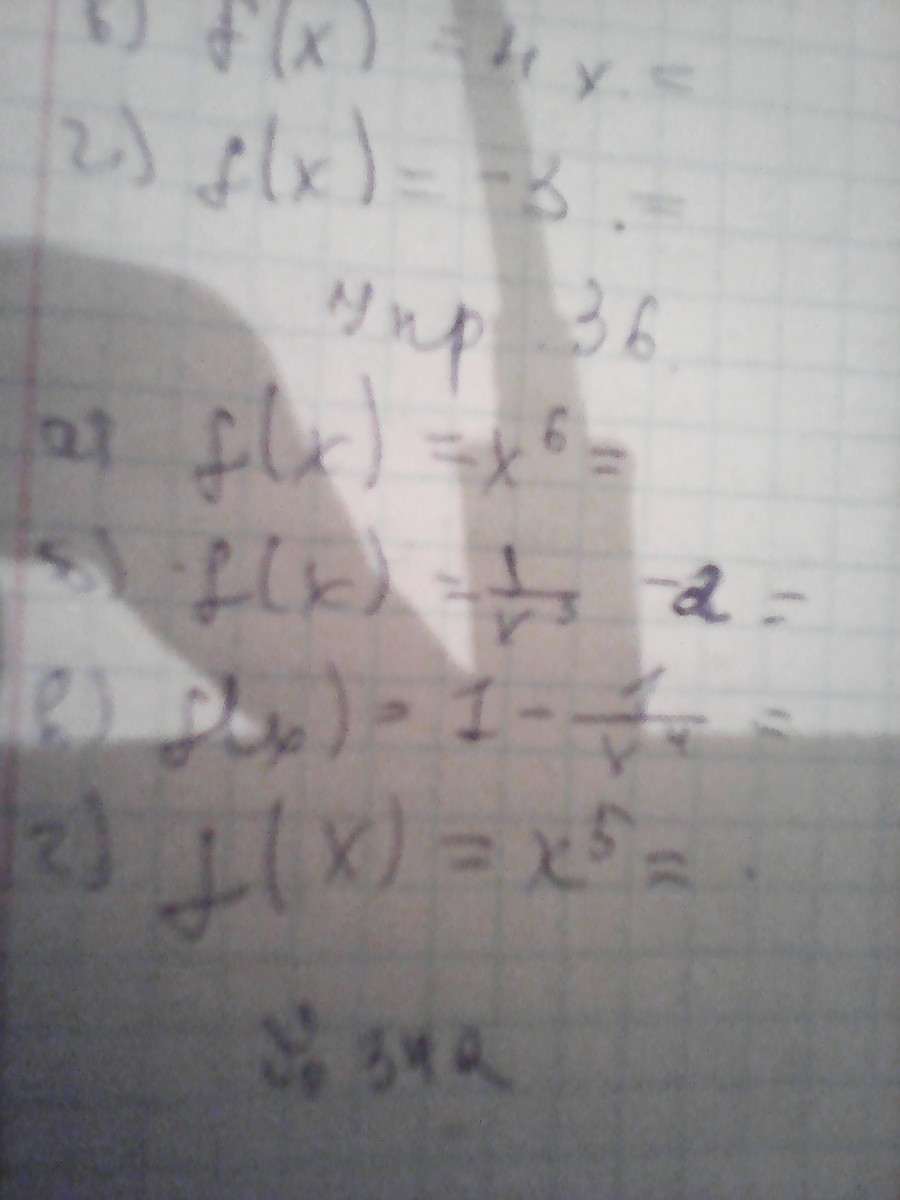 в) f(x) = 4x. =
г) f(x) = -3. =
Упр. 36
а) f(x) = x⁶ =
б) f(x) = 1/x³ - 2 =
в) f(x) = 1 - 1/x⁴ =
г) f(x) = x⁵ = .
342